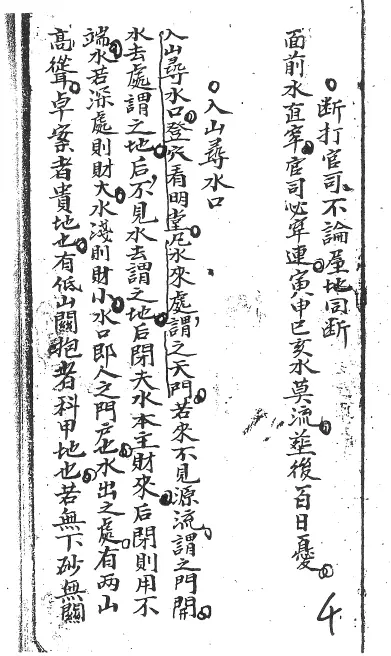 断打官司不論屋地同断
面前水直牽官司必牽連寅申巳亥水莫流塟後百日憂
入山尋水口
入山尋水口登穴看明堂凡水來處謂之天門若來不見源流謂之門開
水去處謂之地后不見水去謂之地后閉夫水本主財來后閉則用不
端水若深處則財大水淺則財小水口即人之門户也水出之處有两山
高聳卓案者貴地也有低山關抱者科甲地也若無下砂無關
4